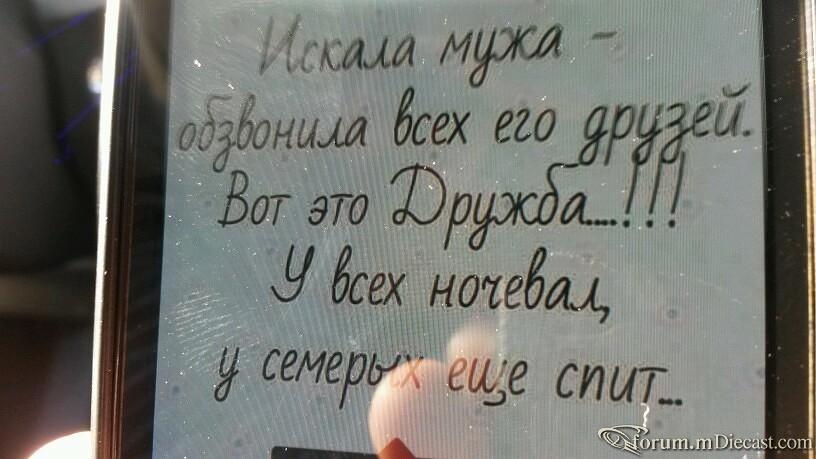 Искала мужа -
обзвонила всех его друзей.
Вот это Дружба....!!!
У всех ночевал,
у семерых еще спит...
forum.mDiecast.com